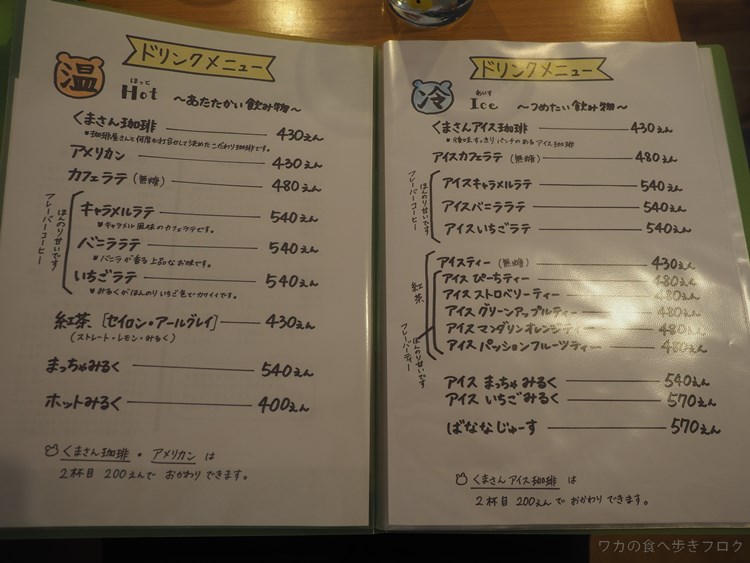 ドリンクメニュー
温
ほっと
Hot 〜あたたかい飲み物〜
くまさん珈琲 430えん
*珈琲屋さんと何度か打合せして決めたこだわり珈琲です。
アメリカン 430えん
カフェラテ (無糖) 480えん
フレーバーコーヒー
ほんのり甘いです
キャラメルラテ 540えん
*キャラメル風味のカフェラテです。
バニララテ 540えん
*バニラが香る上品なお味です。
いちごラテ 540えん
*みるくがほんのりいちご色でカワイイです。
紅茶 [セイロン・アールグレイ] 430えん
(ストレート・レモン・みるく)
まっちゃみるく 540えん
ホットみるく 400えん
くまさん珈琲 ・ アメリカン は
2杯目 200えんで おかわりできます。
ドリンクメニュー
冷
あいす
Ice 〜つめたい飲み物〜
くまさんアイス珈琲 430えん
*後味すっきりパンチのあるアイス珈琲
アイスカフェラテ (無糖) 480えん
フレーバーコーヒー
ほんのり甘いです
アイスキャラメルラテ 540えん
アイスバニララテ 540えん
アイスいちごラテ 540えん
紅茶
フレーバーティー
ほんのり甘いです
アイスティー (無糖) 430えん
アイス ぴーちティー 480えん
アイス ストロベリーティー 480えん
アイス グリーンアップルティー 480えん
アイス マンダリンオレンジティー 480えん
アイス パッションフルーツティー 480えん
アイス まっちゃみるく 540えん
アイス いちごみるく 570えん
ばななじゅーす 570えん
くまさんアイス珈琲 は
2杯目 200えんで おかわりできます。
ワカの食べ歩きブログ